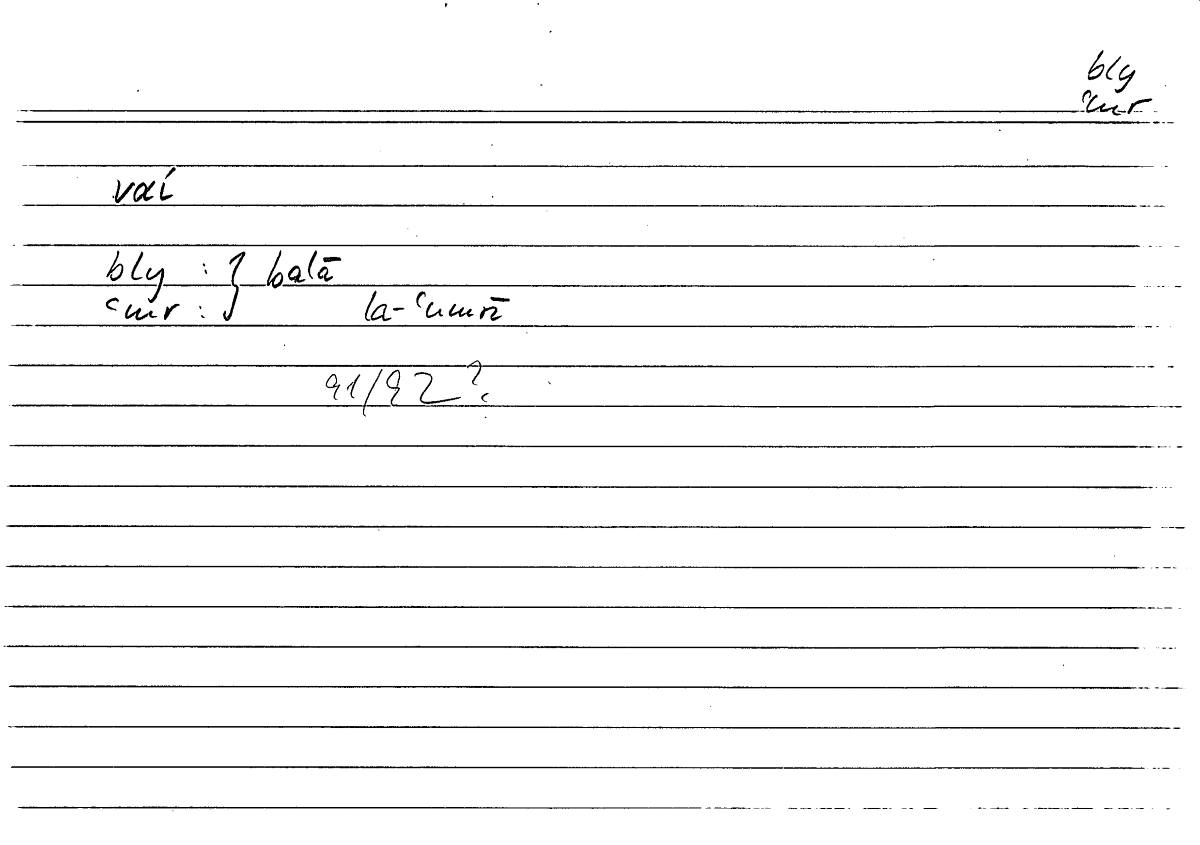 bly
ʿmr
ναί
bly : } balā
ʿmr : } la-ʿumrī
91/92 ?